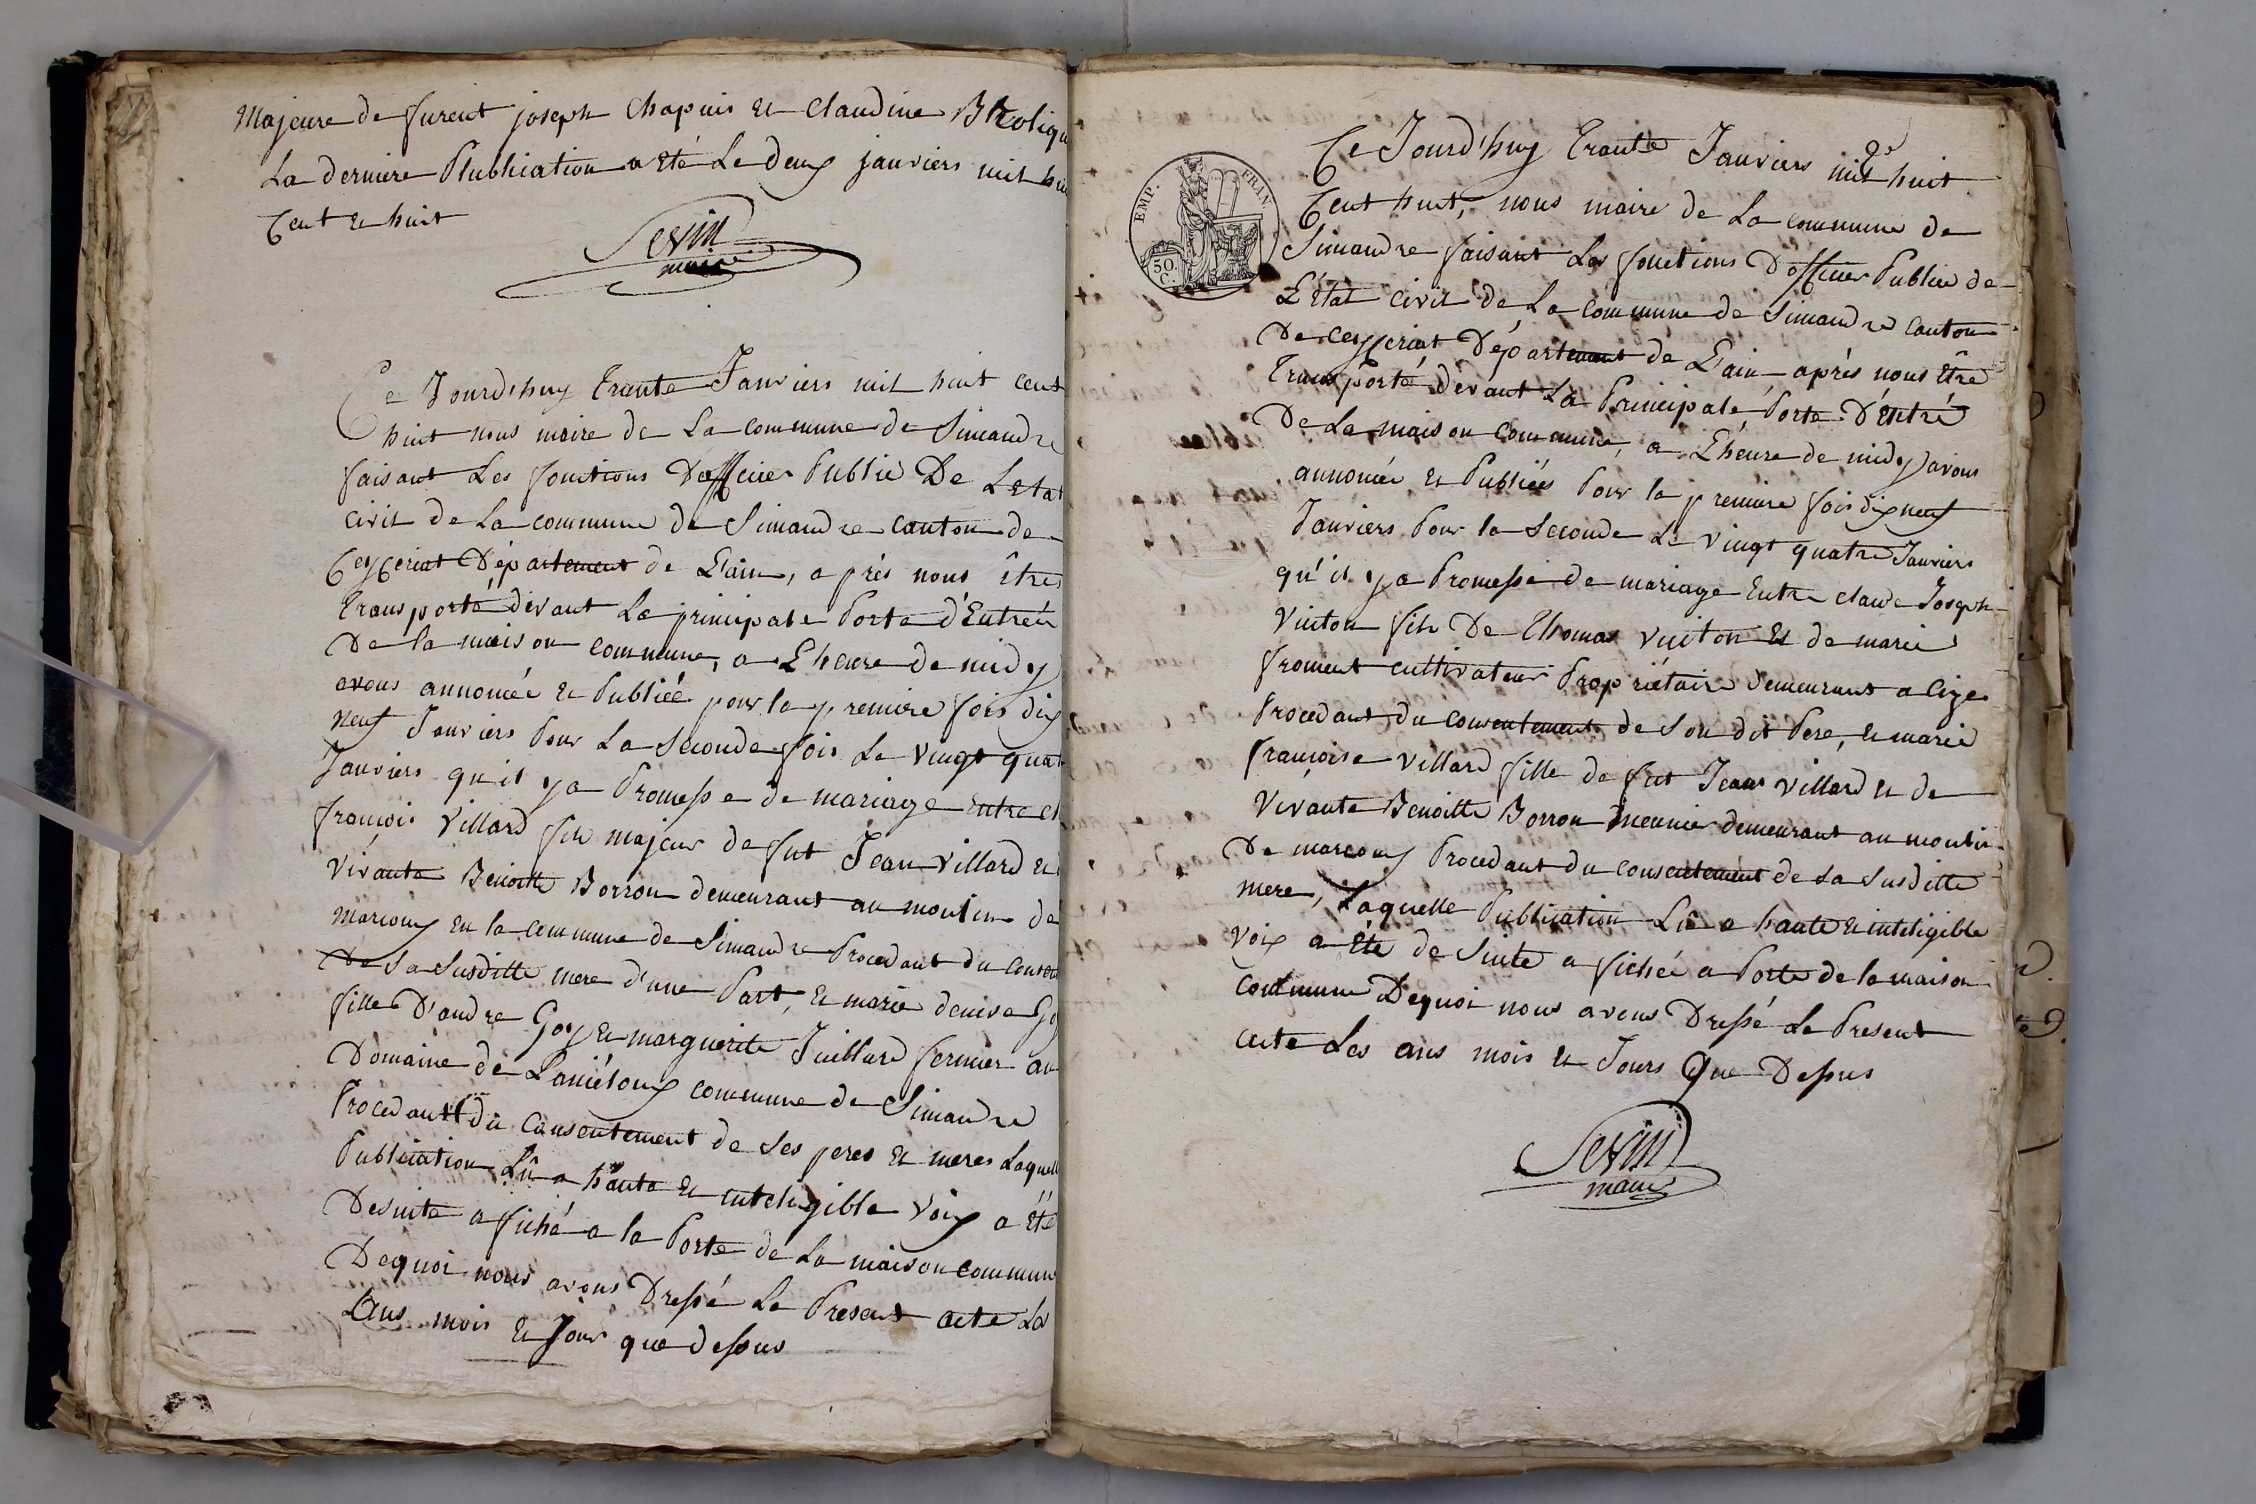 Majeure de furent joseph Chapuis et Claudine
La derniere Publication a été Le deux janviers mil hui
Cent et huit
Sevin
maire
Ce Jourd'huy trante Janviers mil huit cent
huit nous maire de La commune de Simandre
faisant Les fonctions D'officier Public De Letat
civil de La commune de Simandre canton de
Ceyzeriat Département de L'ain, après nous être
transporté dévant La principale Porte d'Entréé
De la maison commune, a L'heure de midy
avons annoncée et Publiéé pour la premiere fois dix
neuf Janviers Pour La Seconde fois Le vingt quat
Janviers qu'il ya Promesse de mariage Entre cl
françois Villard fils majeur de fut Jean villard et
vivante Benoitte Borron demeurant au moulin de
marcoux en la commune de Simandre Procedant du conse
De Sa Susditte mere d'une Part, et marie denise Go
fille D'andre Goy et marguerite Juillard fermier au
Domaine de commune de Simandre
Procedant du Consentement de Ses peres et meres Laquell
Publication Lû a haute et inteligible voix a été
De suite afiché a la Porte de La maison commune
Dequoi nous avons Dressé Le Present acte Les
Ans mois et Jour que dessus
EMP. FRAN.
50.
C.
Ce Jourd'huy trante Janviers mil huit
Cent huit, nous maire de La commune de
Simandre faisant Les fonctions D'officier Public de
L'Etat civil de La commune de Simandre canton
De Ceyzeriat Département de L'ain après nous être
transporté dévant La Principale Porte D'Entré
De La maison commune, a L'heure de midy avons
annoncée et Publiéé Pour la premiere fois dix neuf
Janviers Pour la Seconde Le vingt quatre Janviers
qu'il ya Promesse de mariage Entre claude Joseph
Vuiton fils De Thomas vuiton Et de marie
froment cultivateur Propriétaire demeurant a Cize
Procedant du consentement de Son dit Pere, et marie
françoise villard fille de fut Jean villard et de
Vivante Benoitte Borron meunier demeurant au moulin
De marcoux Procedant du consentement de Sa Susditte
mere, Laquelle Publication Lû a haute et inteligible
voix a Eté de Suite afichéé a Porte de la maison
commune Dequoi nous avons Dressé Le Present
acte Les ans mois et Jours Que Dessus
Sevin
maire